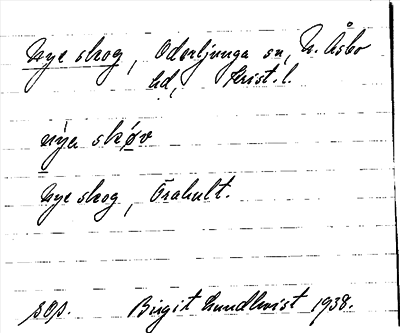 Nye skog, Oderljunga sn, N. Åsbo
hd, Krist. l.
nya skøv
Nye skog, Örahult.
sop. Birgit Lundkvist 1938.